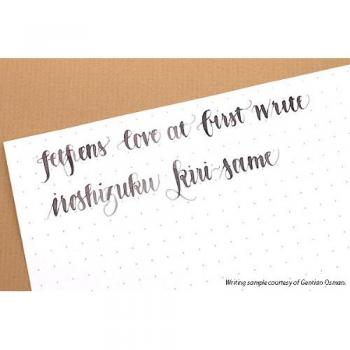 jetpens love at first write
iroshizuku kiri-same
Writing sample courtesy of Gentian Osman.